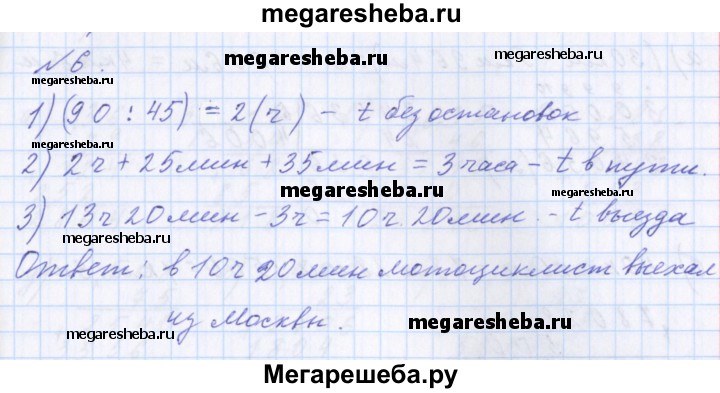 megaresheba.ru
№6.
megaresheba.ru megaresheba.ru
1) (90 : 45) = 2(ч) - t без остановок
2) 2ч + 25мин + 35мин = 3 часа - t в пути.
megaresheba.ru
3) 13ч 20мин - 3ч = 10ч. 20мин. - t выезда
megaresheba.ru
Ответ: в 10ч 20мин мотоциклист выехал
из Москвы.
megaresheba.ru megaresheba.ru
Мегарешеба.ру